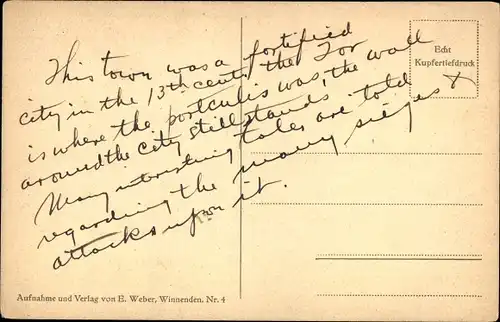 This town was a fortified
city in the 13th cent. the Tor
is where the portculis was, the wall
around the city still stands.
Many interesting tales are told
regarding the many sieges &
attacks upon it.
Echt
Kupfertiefdruck
Aufnahme und Verlag von E. Weber, Winnenden. Nr. 4